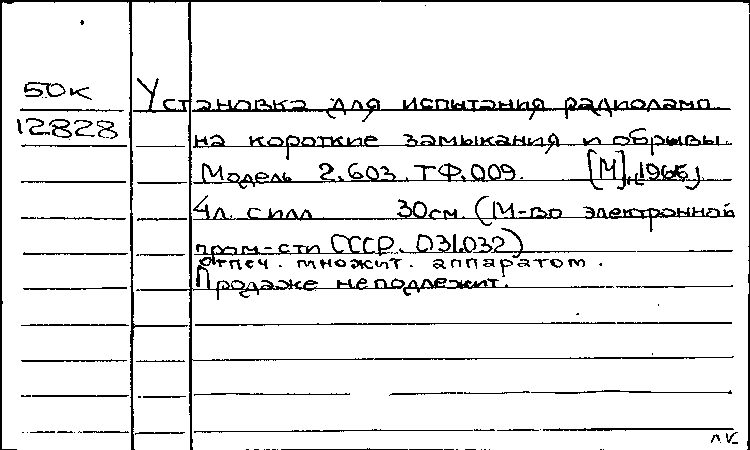 50к
12828
Установка для испытания радиоламп
на короткие замыкания и обрывы.
Модель 2.603.ТФ.009. [М], 1966
4л. с илл 30см. (М-во электронной
пром-сти СССР. 031.032)
Отпеч. множит. аппаратом.
Продаже не подлежит.